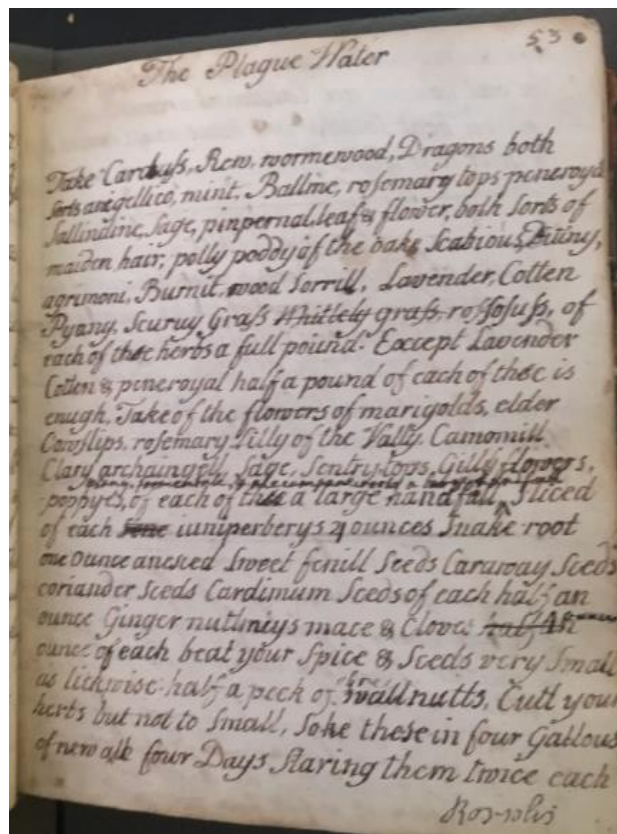 53
The Plague Water
Take Carduſs, Rew, wormewood, Dragons both
ſorts angellico, mint, Ballme, roſemary tops peneroyal
Sallindine, Sage, pinpernal, leaf & flower, both ſorts of
maiden hair, polly poddy of the oake Scabious,
agrimoni, Burnit, wood Sorrill, Lavender, Cotten
Pyany, Scuruy Graſs graſs roſſoſuſs, of
each of theſe herbs a full pound. Except Lavender
Cotten & peneroyal half a pound of each of theſe is
enugh, Take of the flowers of marigolds, elder
Cowſlips, roſemary Lilly of the Vally, Camomill
Clary archaingely, Sage, Sentry tops, Gilly flowers,
poppyes, of each of theſe a large handfall, ſliced
of each iuniperberys 4 ounces Snake root
one ounce aneſeed Sweet fenill Seeds Caraway Seeds
coriander Seeds Cardimum Seeds of each half an
ounce Ginger nuttmiys mace & Cloves
ounce of each beat your Spice & Seeds very Small
as lickwise half a peck of wallnutts, Cutt your
herbs but not to Small, Soke theſe in four Gallous
of new ale four Days Staring them twice each
Ros-solis